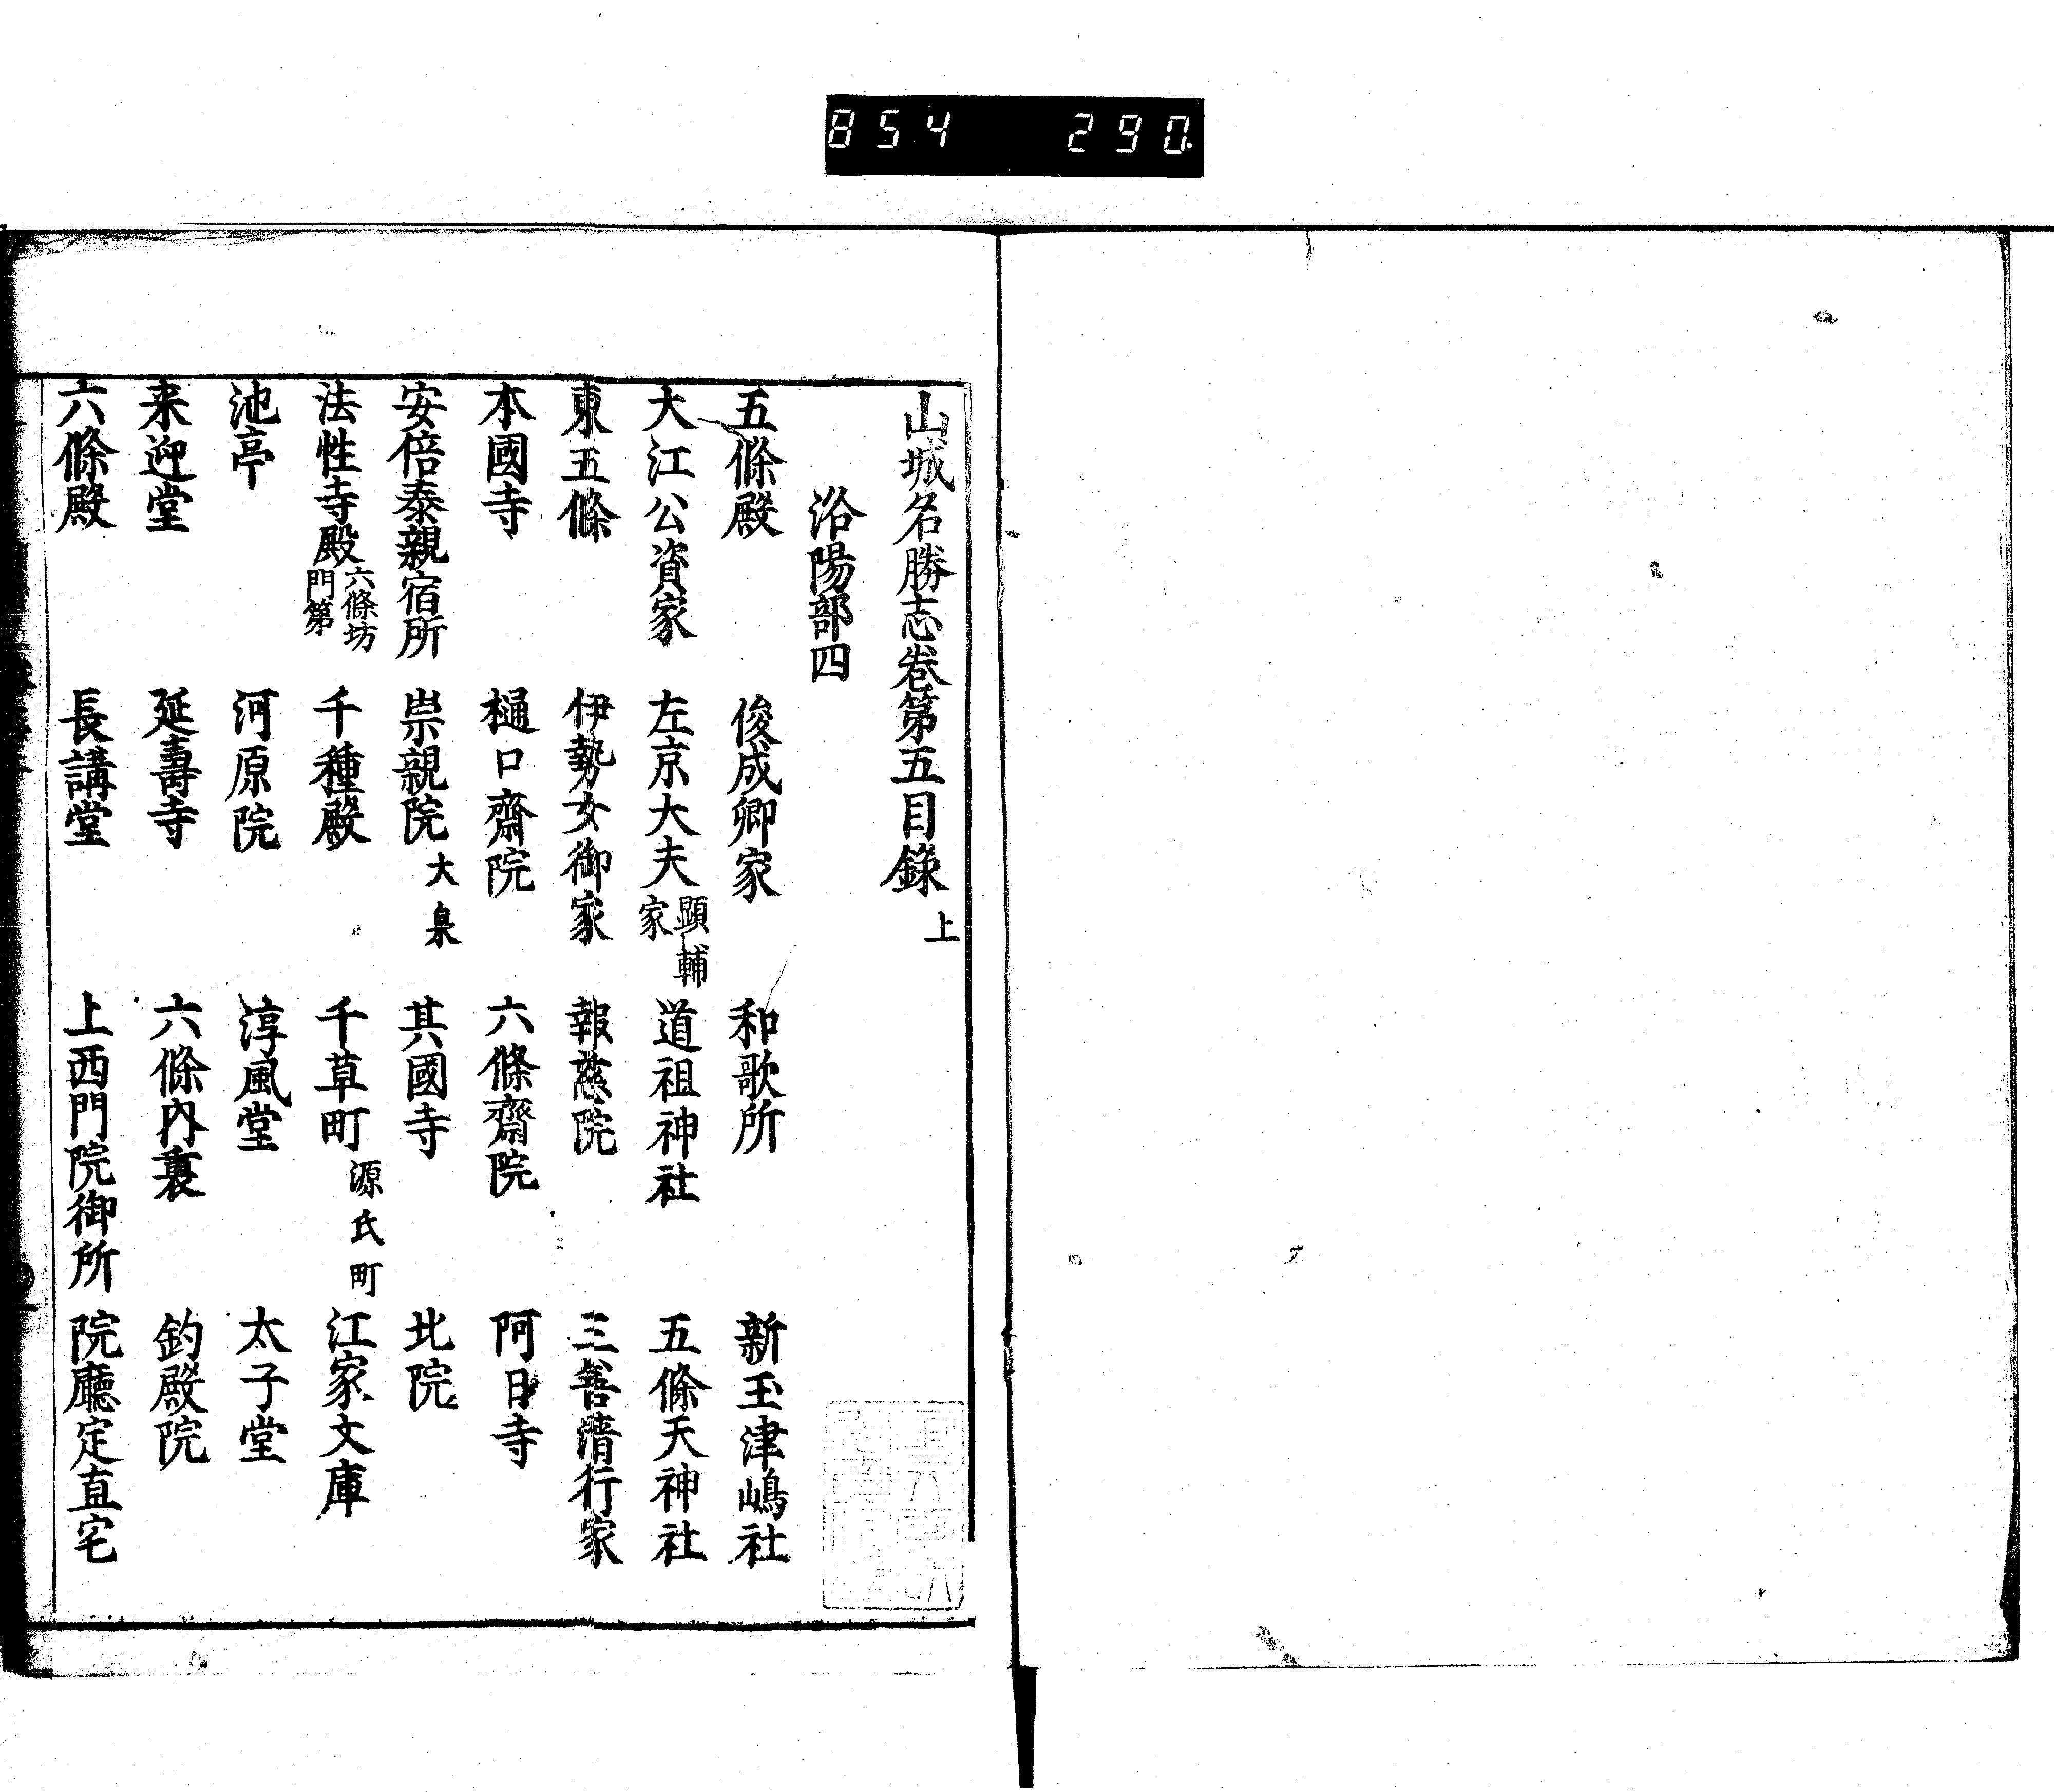 854 290.
山城名勝志巻第五目錄 上
洛陽部四
五條殿 俊成卿家 和歌所 新玉津嶋社
大江公資家 左京大夫顕輔家 道祖神社 五條天神社
東五條 伊勢女御家 報慈院 三善清行家
本國寺 樋口齋院 六條齋院 阿日寺
安倍泰親宿所 崇親院 大泉 其國寺 北院
法性寺殿 六條坊門第 千種殿 千草町 源氏町 江家文庫
池亭 河原院 淳風堂 太子堂
来迎堂 延壽寺 六條內裏 釣殿院
六條殿 長講堂 上西門院御所 院廳定直宅